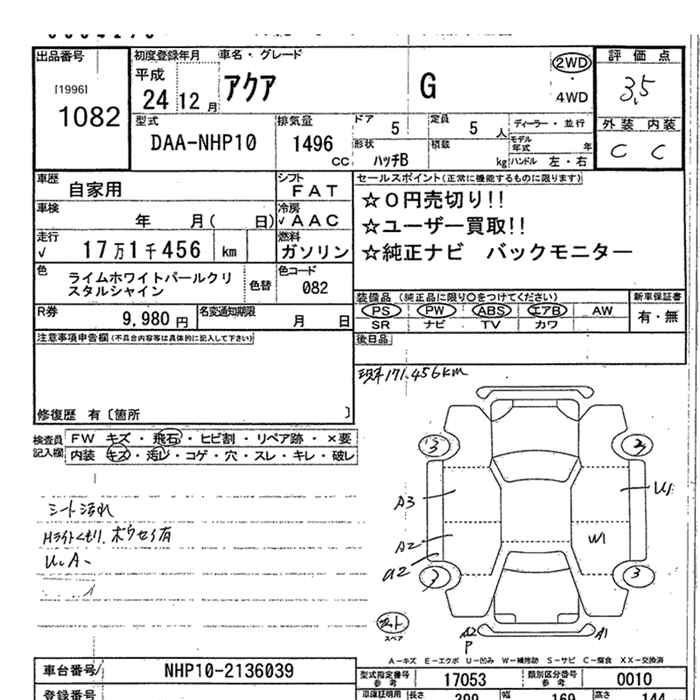 出品番号
[1996]
1082
初度登録年月
平成
24 12 月
車名・グレード
アクア
G
2WD
・
4WD
評価点
3.5
外装 内装
C C
型式
DAA-NHP10
排気量
1496
CC
ドア
5
定員
5 人
形状
ハッチB
積載
kg
ディーラー・並行
モデル年式 年
ハンドル 左・右
車歴
自家用
シフト
FAT
車検
年 月( 日)
冷房
√ AAC
走行
√ 17万1千456 km
燃料
ガソリン
セールスポイント(正常に機能するものに限ります)
☆0円売切り!!
☆ユーザー買取!!
☆純正ナビ バックモニター
色
ライムホワイトパールクリ
スタルシャイン
色替
色コード
082
装備品(純正品に限り○をつけてください)
PS PW ABS エアB AW
SR ナビ TV カワ
新車保証書
有・無
R券
9,980 円
名変通知期限
月 日
後日品
注意事項申告欄(不具合内容等は具体的に記入して下さい)
現車171,456km
修復歴 有〔箇所 〕
検査員
記入欄
FW キズ・飛石・ヒビ割・リペア跡・×要
内装 キズ・汚レ・コゲ・穴・スレ・キレ・破レ
シート汚れ
Hライトくもり、ボウセイ有
U、A
A3
A2
U2
U1
W1
スペア
A2
P
A1
A-キズ E-エクボ U-凹み W-補修跡 S-サビ C-腐食 XX-交換済
車台番号
NHP10-2136039
型式指定番号
参考
17053
類別区分番号
参考
0010
登録番号
車庫証明用
長さ
399
幅
169
高さ
144